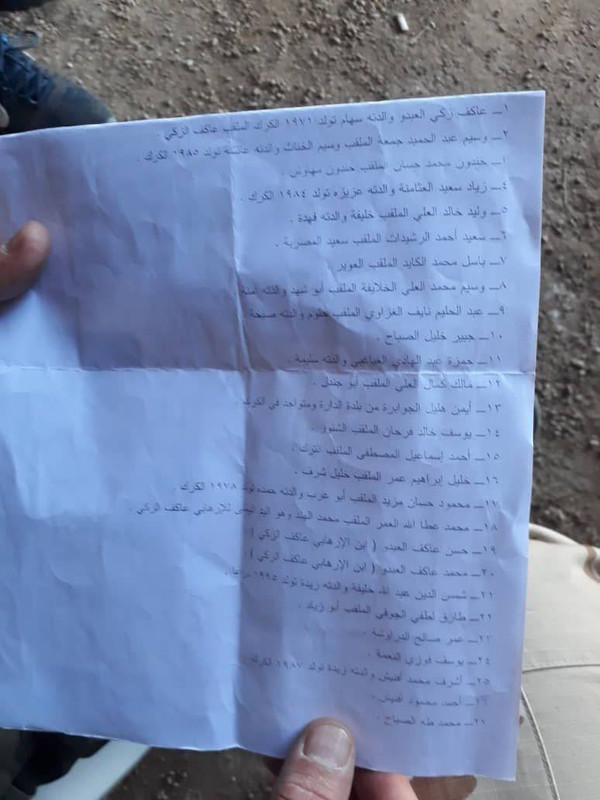 ١ــ عاكف زكي العبدو والدته سهام تولد ١٩٧١ الكرك الملقب عاكف الزكي .
٢ــ وسيم عبد الحميد جمعة الملقب وسيم الخناث والدته عائشة تولد ١٩٨٥ الكرك .
خلدون محمد حسان الملقب خلدون سهاوش .
٤ــ زياد سعيد العثامنة والدته عزيزه تولد ١٩٨٤ الكرك .
٥ــ وليد خالد العلي الملقب خليفة والدته فهدة .
٦ــ سعيد أحمد الرشيدات الملقب سعيد المصرية .
٧ــ باسل محمد الكايد الملقب العوير
٨ــ وسيم محمد العلي الخلايفة الملقب أبو فهد والدته آمنة
٩ــ عبد الحليم نايف الغزاوي الملقب حلوم والدته صبحة
١٠ــ جبير خليل الصباح .
١١ــ حمزة عبد الهادي العياشي والدته سليمة .
١٢ــ مالك كمال العلي الملقب أبو جندل .
١٣ــ أيمن هليل الجوابرة من بلدة الدارة ومتواجد في الكرك
١٤ــ يوسف خالد فرحان الملقب الشنور .
١٥ــ أحمد إسماعيل المصطفى الملقب الترك .
١٦ــ خليل إبراهيم عمر الملقب خليل شرف .
١٧ــ محمود حسان مزيد الملقب أبو عرب والدته حمده تولد ١٩٧٨ الكرك .
١٨ــ محمد عطا الله العمر الملقب محمد الهلد وهو اليد اليمنى للإرهابي عاكف الزكي .
١٩ــ حسن عاكف العبدو ( ابن الإرهابي عاكف الزكي )
٢٠ــ محمد عاكف العبدو ( ابن الإرهابي عاكف الزكي )
٢١ــ شمس الدين عبد الله خليفة والدته ريدة تولد ١٩٩٥
٢٢ــ طارق لطفي الجوفي الملقب أبو زياد .
٢٣ــ عمر صالح الدراوشة .
٢٤ــ يوسف فوزي النعمة .
٢٥ــ أشرف محمد أفنيش والدته ريدة تولد ١٩٨٧ الكرك .
أحمد محمود أفنيش .
محمد طه الصباح .